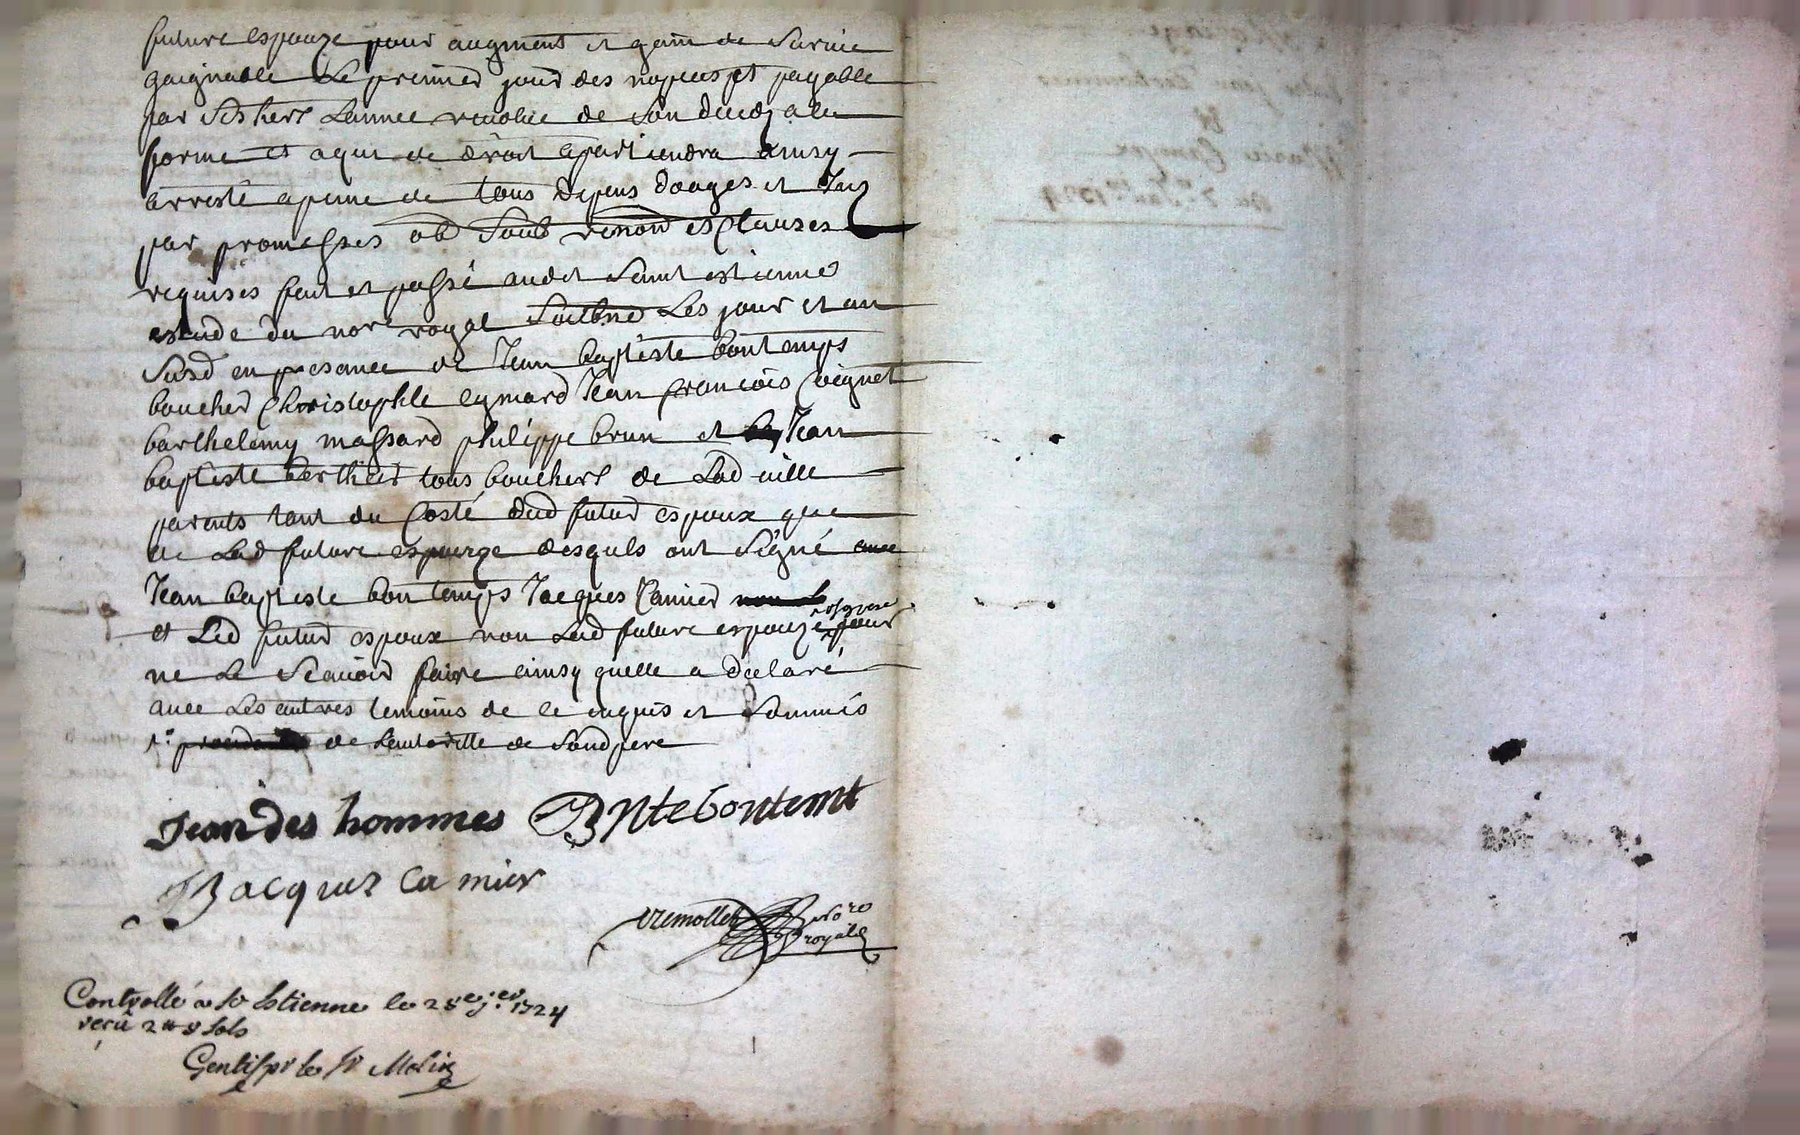 future espouze pour augment et gain de survie
gaignable le premier jour des nopces et payable
par ses hers lannee revolue de son deceds a la
forme et a qui de droit apartiendra ainsy
arresté a peine de tous depens doages et
par promesses obb soub renond es clauses
requises fait et passé audit saint estienne
estude du nore royal soubné les jour et an
susd en presance de Jean baptiste bontemps
boucher Christophle eymard Jean françois Coignet
barthelemy massard philippe brun et Jean
baptiste berthier tous bouchers de lad ville
parents tant du Costé dud futur espoux que
de lad future espouze desquels ont signé avec
Jean baptiste bontemps Jacques Camier
et led futur espoux non lad future espouze pour
ne le scavoir faire ainsy quelle a declaré
avec les autres temoins de ce enquis et sommés
de lautoritte de sond pere
Jean des hommes Bnte bontemt
Jacques camier
nore
royal
Controllé a St Estienne le 28e jer 1724
reçu 2 # 8 sols
Gentil pr le Sr
Mariage
Entre Jean Deshommes
Et
Marie
Du 7e Janer 1724